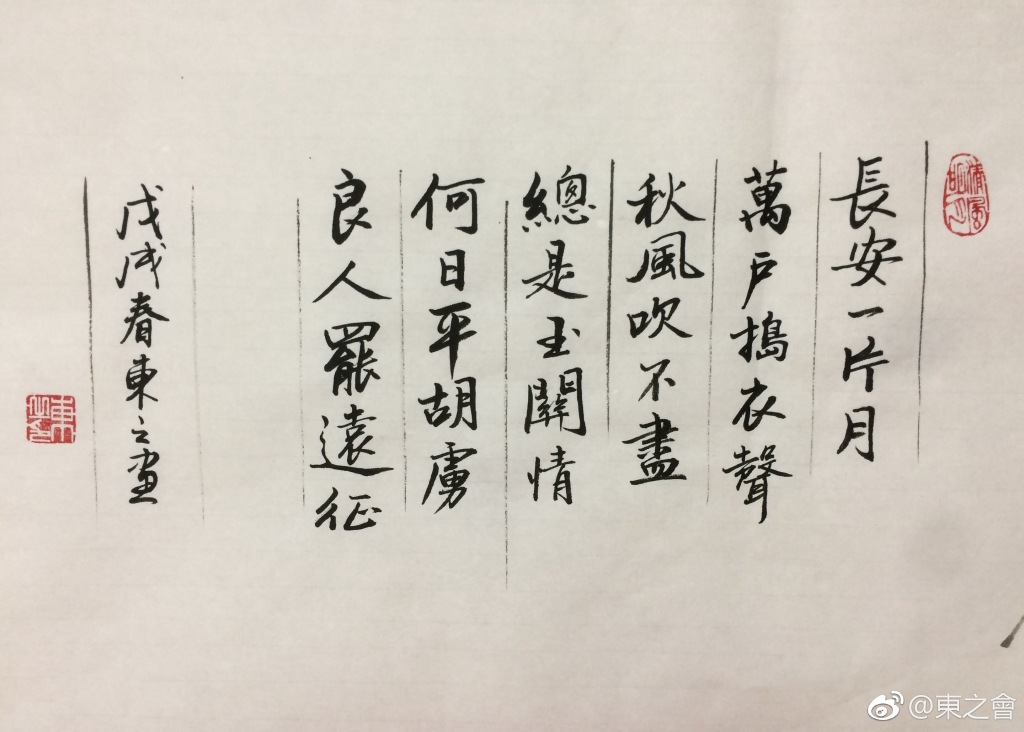 長安一片月
萬戶搗衣聲
秋風吹不盡
總是玉關情
何日平胡虜
良人罷遠征
戊戌春東之畫
@東之會